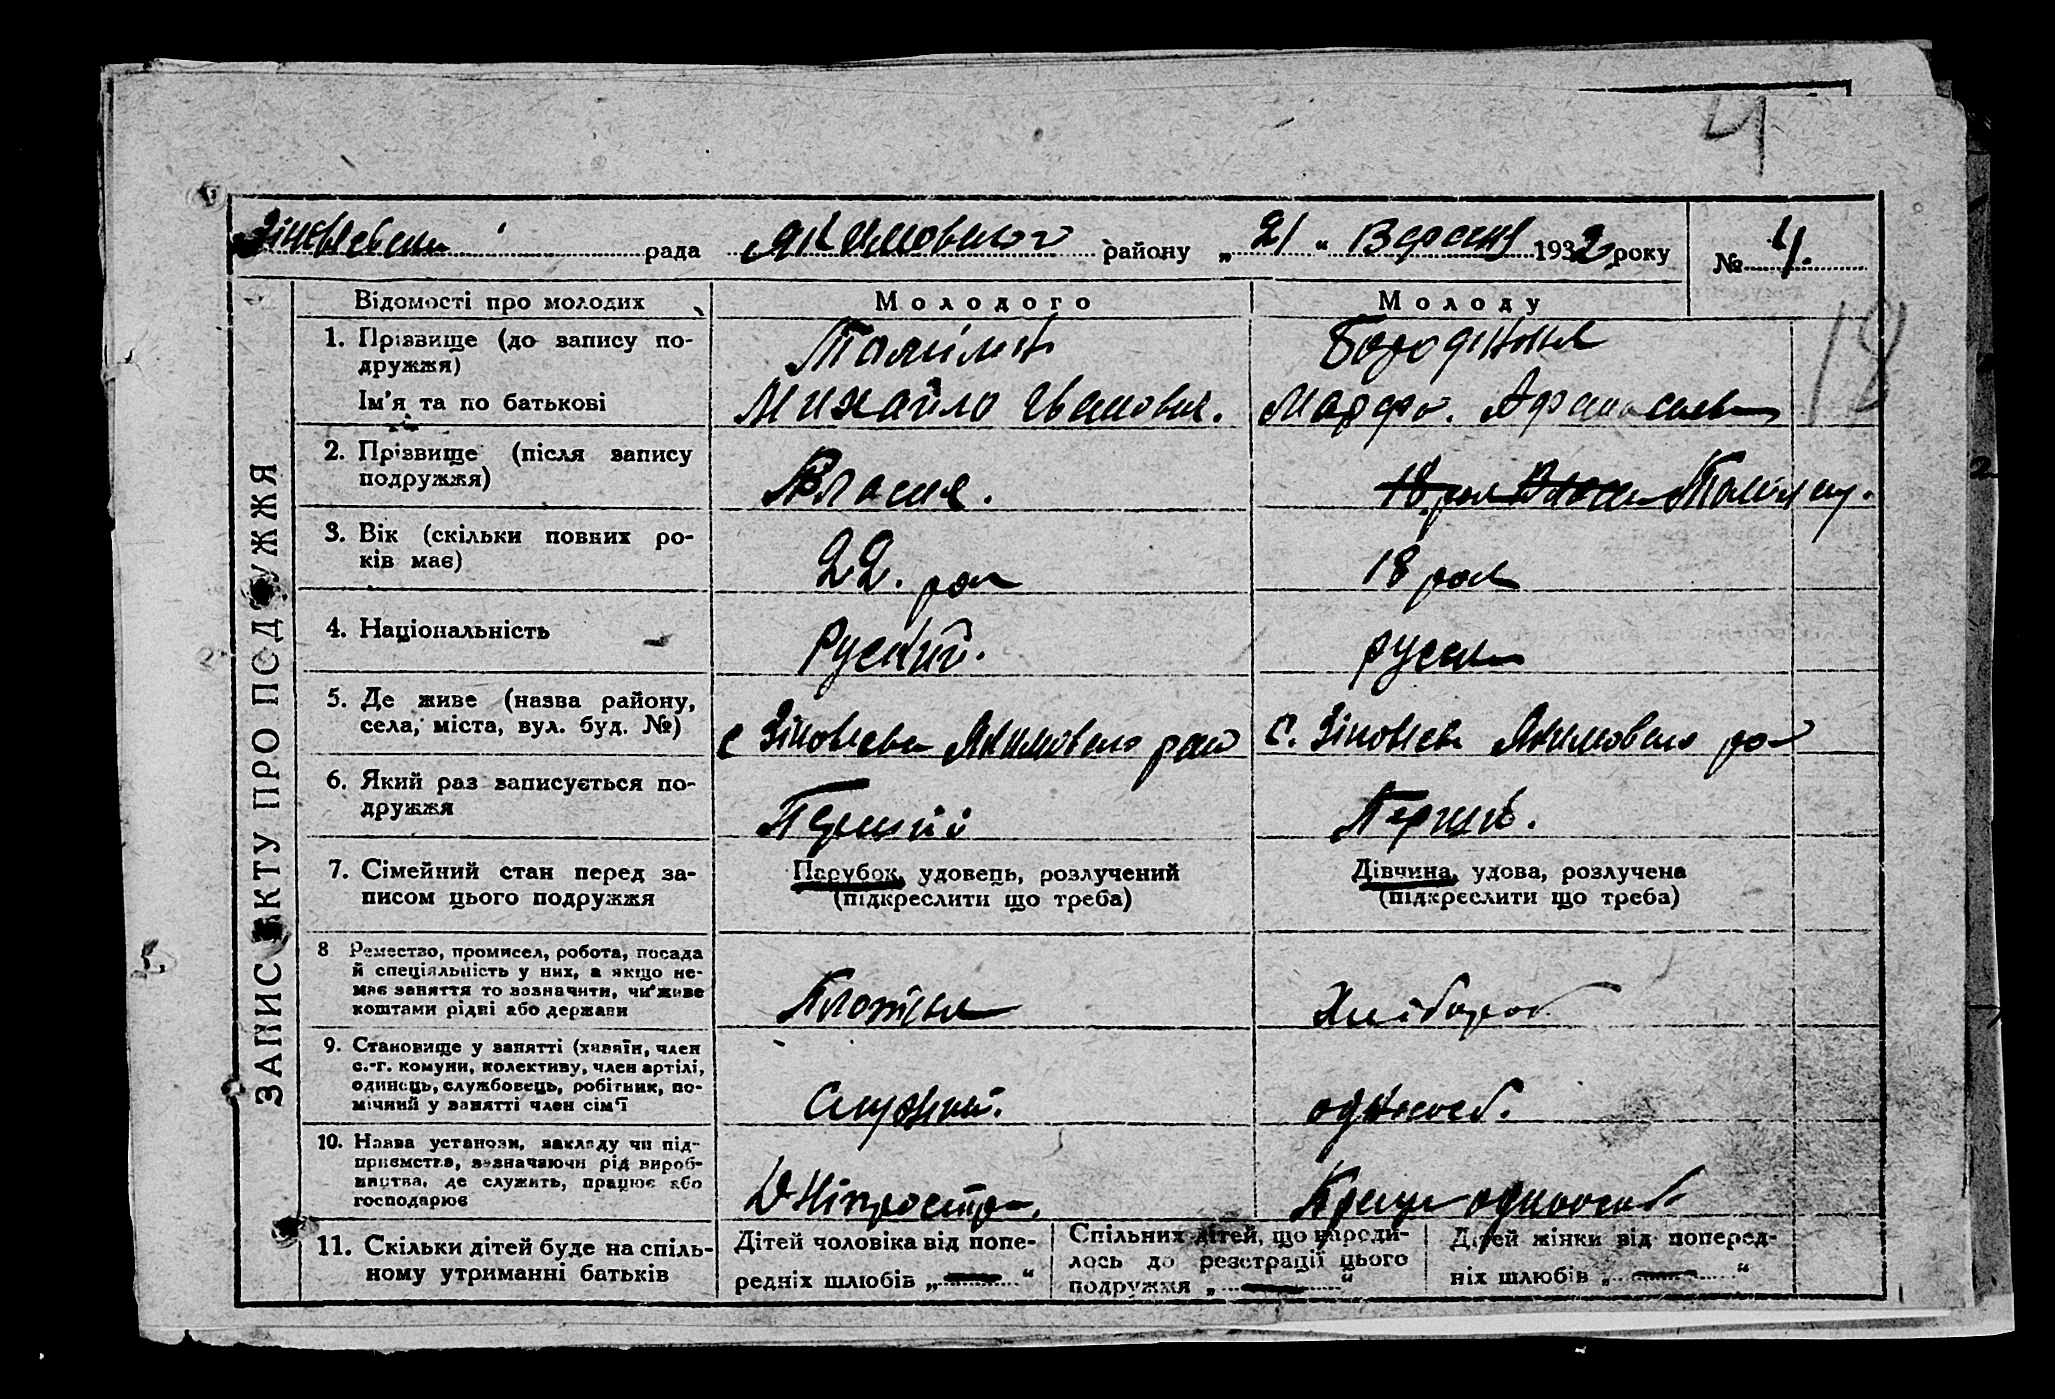 4
рада Якимовського району „ 21 “ Вересня 1932 року № 4.
18
ЗАПИС АКТУ ПРО ПОДРУЖЖЯ
Відомості про молодих Молодого Молоду
1. Прізвище (до запису по-
дружжя)
Ім'я та по батькові Михайло Іванович. Марфа.
2. Прізвище (після запису
подружжя) Власне. 18 рок
3. Вік (скільки повних ро-
ків має) 22. рок 18 рок
4. Національність Руский. руска
5. Де живе (назва району,
села, міста, вул. буд. №) с Зіновієвка Якимовсько рай с. Зіновієвк Якимовсько ра
6. Який раз записується по-
дружжя Перший Перший.
7. Сімейний стан перед за-
писом цього подружжя Парубок, удовець, розлучений (підкреслити що треба) Дівчина, удова, розлучена (підкреслити що треба)
8 Ремество, промисел, робота, посада
й спеціяльність у них, а якщо не-
має заняття то зазначити, чи живе
коштами рідні або держави Плотник Хлібороб
9. Становище у занятті (хазяїн, член
с.-г. комуни, колективу, член артілі,
одинець, службовець, робітник, по-
мічний у занятті член сім'ї одноособ.
10. Назва установи, закладу чи під-
приємства, зазначаючи рід вироб-
ництва, де служить, працює або
господарює Дніпростро. одноособ
11. Скільки дітей буде на спіль-
ному утриманні батьків
Дітей чоловіка від попе-
редніх шлюбів „ — “
Спільних дітей, що народи-
лось до реєстрації цього
подружжя „ — “
Дітей жінки від поперед-
ніх шлюбів „ — “